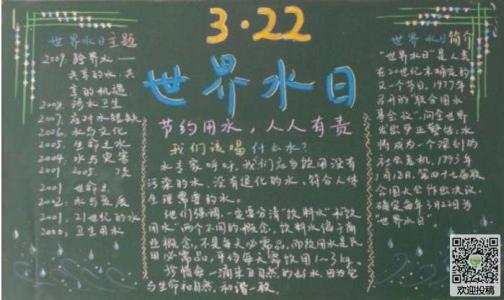 3·22
世界水日
节约用水，人人有责
世界水日主题
2009，跨界水——
共享的水、共
享的机遇
2008，涉水卫生
2007，应对水短缺
2006，水与文化
2005，生命之水
2004，水与灾害
2003
2002，水与发展
2001，21世纪的水
2000，卫生用水
我们该喝什么水?
水专家呼吁，我们应当饮用没有
污染的水、没有退化的水、符合人体
生理需要的水。
他们强调，一定要分清"饮料水"和"饮
用水"两个不同的概念，饮料水属于商
业概念，不是每天必需品，而饮用水是民
用必需品，平均每天需饮用1—3kg。
珍惜每一滴来自自然的好水，因为它
与生命和自然，和谐一致。
世界水日简介
"世界水日"是人类
在20世纪末确定的
又一个节日。1977年
召开的"联合国水
事会议"，向全世界
发出严正警告：水
将成为一个深刻的
社会危机，1993年
1月18日，第四十七届联
合国大会作出决议，
确定每年3月22日为
"世界水日"。
欢迎投稿